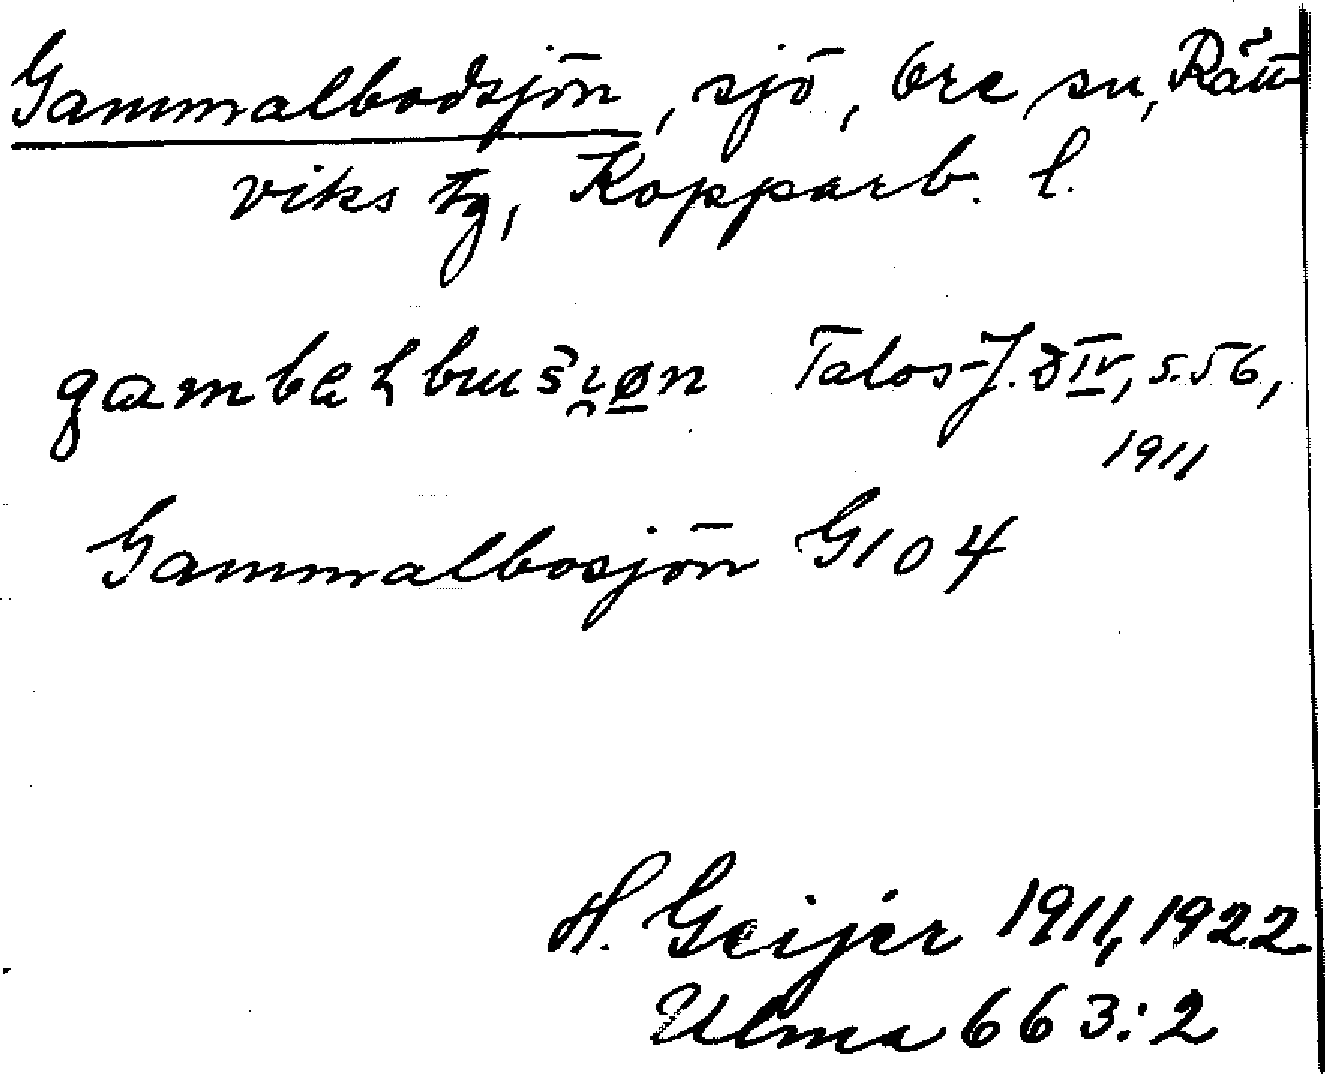 Gammalbodsjön, sjö, Ore sn, Rätt-
viks tg, Kopparb. l.
Talos-J. D IV, s. 56,
1911
Gammalbosjön G104
H. Geijer 1911, 1922
Ulma 663:2